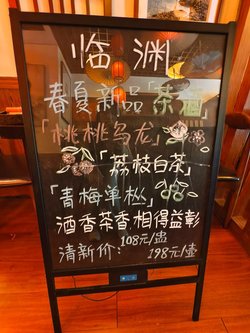 临渊
春夏新品「茶酒」
「桃桃乌龙」
「荔枝白茶」
「青梅单枞」
酒香茶香相得益彰
清新价：108元/壶
198元/壶